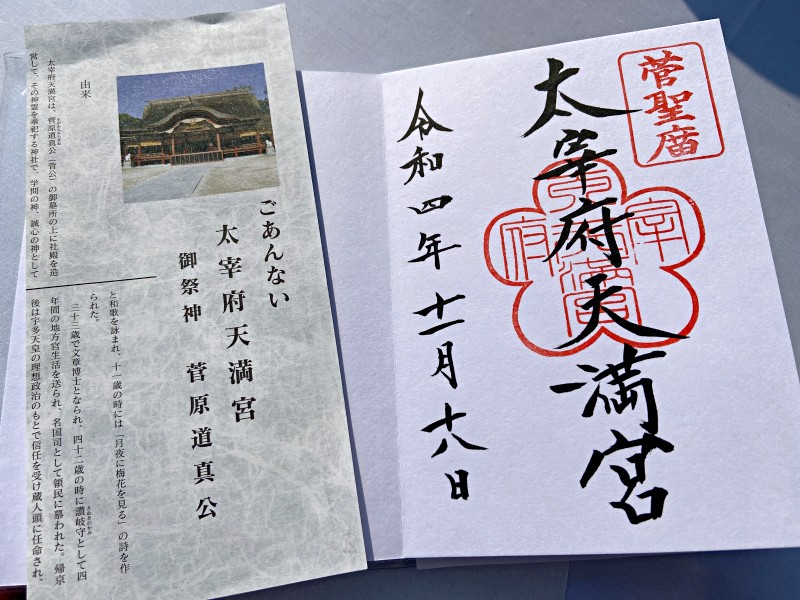 菅聖庿
太宰府天満宮
令和四年十一月十八日
ごあんない
太宰府天満宮
御祭神 菅原道真公
由来
太宰府天満宮は、菅原道真公（菅公）の御墓所の上に社殿を造
営して、その神霊を奉祀する神社で、学問の神、誠心の神として
と和歌を詠まれ、十一歳の時には「月夜に梅花を見る」の詩を作
られた。
三十三歳で文章博士となられ、四十二歳の時に讃岐守として四
年間の地方官生活を送られ、名国司として領民に慕われた。帰京
後は宇多天皇の理想政治のもとで信任を受け蔵人頭に任命され、